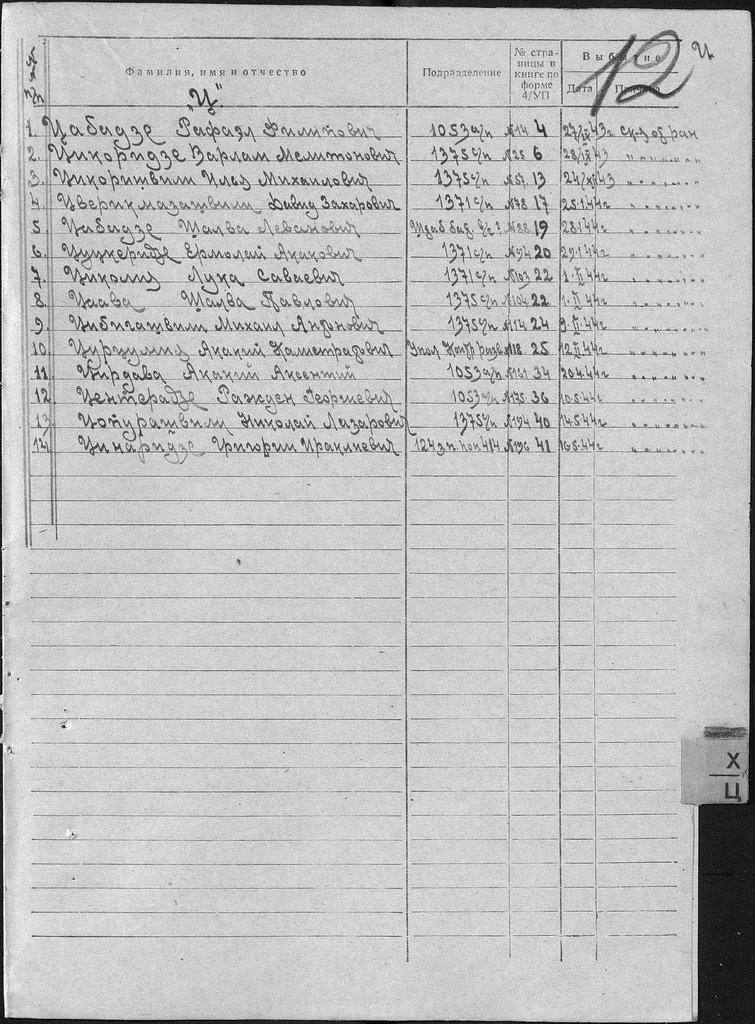 12 Ц
№№ п/п
Фамилия, имя и отчество
Подразделение
№ страницы в книге по форме 4/УП
Выбытие
Дата
Причина
"Ц"
1. Цабадзе Рафаэл Филипович 1053 с/п №14 4 27/IX 43г ск-з об ран
2. Цикоридзе Варлам Мелитонович 1375 с/п №25 6 28/IX 43 " " " " "
3. Цикоришвили Илья Михаилович 1375 с/п №57 13 24/XII 43 " " " " "
4. Цверикмазашвили Давид Захарович 1371 с/п №78 17 25.1.44г " " " " "
5 Цабадзе Шалва Леванович Штаб №88 19 28.1.44г " " " " "
6. Цуцкеридзе Ермолай Акакович 1371 с/п №94 20 29.1.44г " " " " "
7. Циколия Лука Саваевич 1371 с/п №103 22 1.II 44г " " " " "
8. Цаава Шалва Павлович 1375 с/п №104 22 1.II 44г " " " " "
9. Цибигашвили Михаил Антонович 1375 с/п №114 24 9.II 44г " " " " "
10. Цурцумия Акакий Каместрафович №118 25 12.II 44г " " " " "
11. Цирдава Акакий Аксентий 1053 с/п №161 34 20.4.44г " " " " "
12 Центерадзе Ражден Георгиевич 1053 с/п №175 36 10.5.44г " " " " "
13. Цопурашвили Николай Лазарович 1375 с/п №194 40 14.5.44г " " " " "
14. Цинаридзе Григории Ираклиевич 1243 п. 414 №196 41 16.5.44г " " " " "
Х
Ц